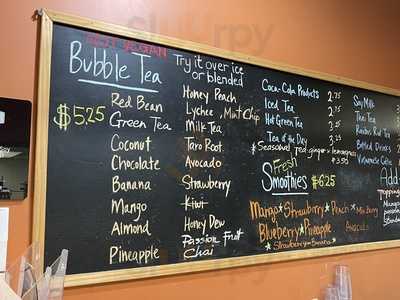 Bubble Tea
$5.25
Red Bean
Green Tea
Coconut
Chocolate
Banana
Mango
Almond
Pineapple
Try it over ice
or blended
Honey Peach
Lychee, Mint Chip
Milk Tea
Taro Root
Avocado
Strawberry
Kiwi
Honey Dew
Passion Fruit
Chai
Coca-Cola Products
Iced Tea
Hot Green Tea
Tea of the Day
Seasonal Red ginger + lemongrass
Fresh
Smoothies $6.25
Mango Strawberry Peach
Blueberry Pineapple Avocado
Strawberry Banana
Soy Milk
Thai Tea
Bottled Drinks
Vietnamese
Add
Topping